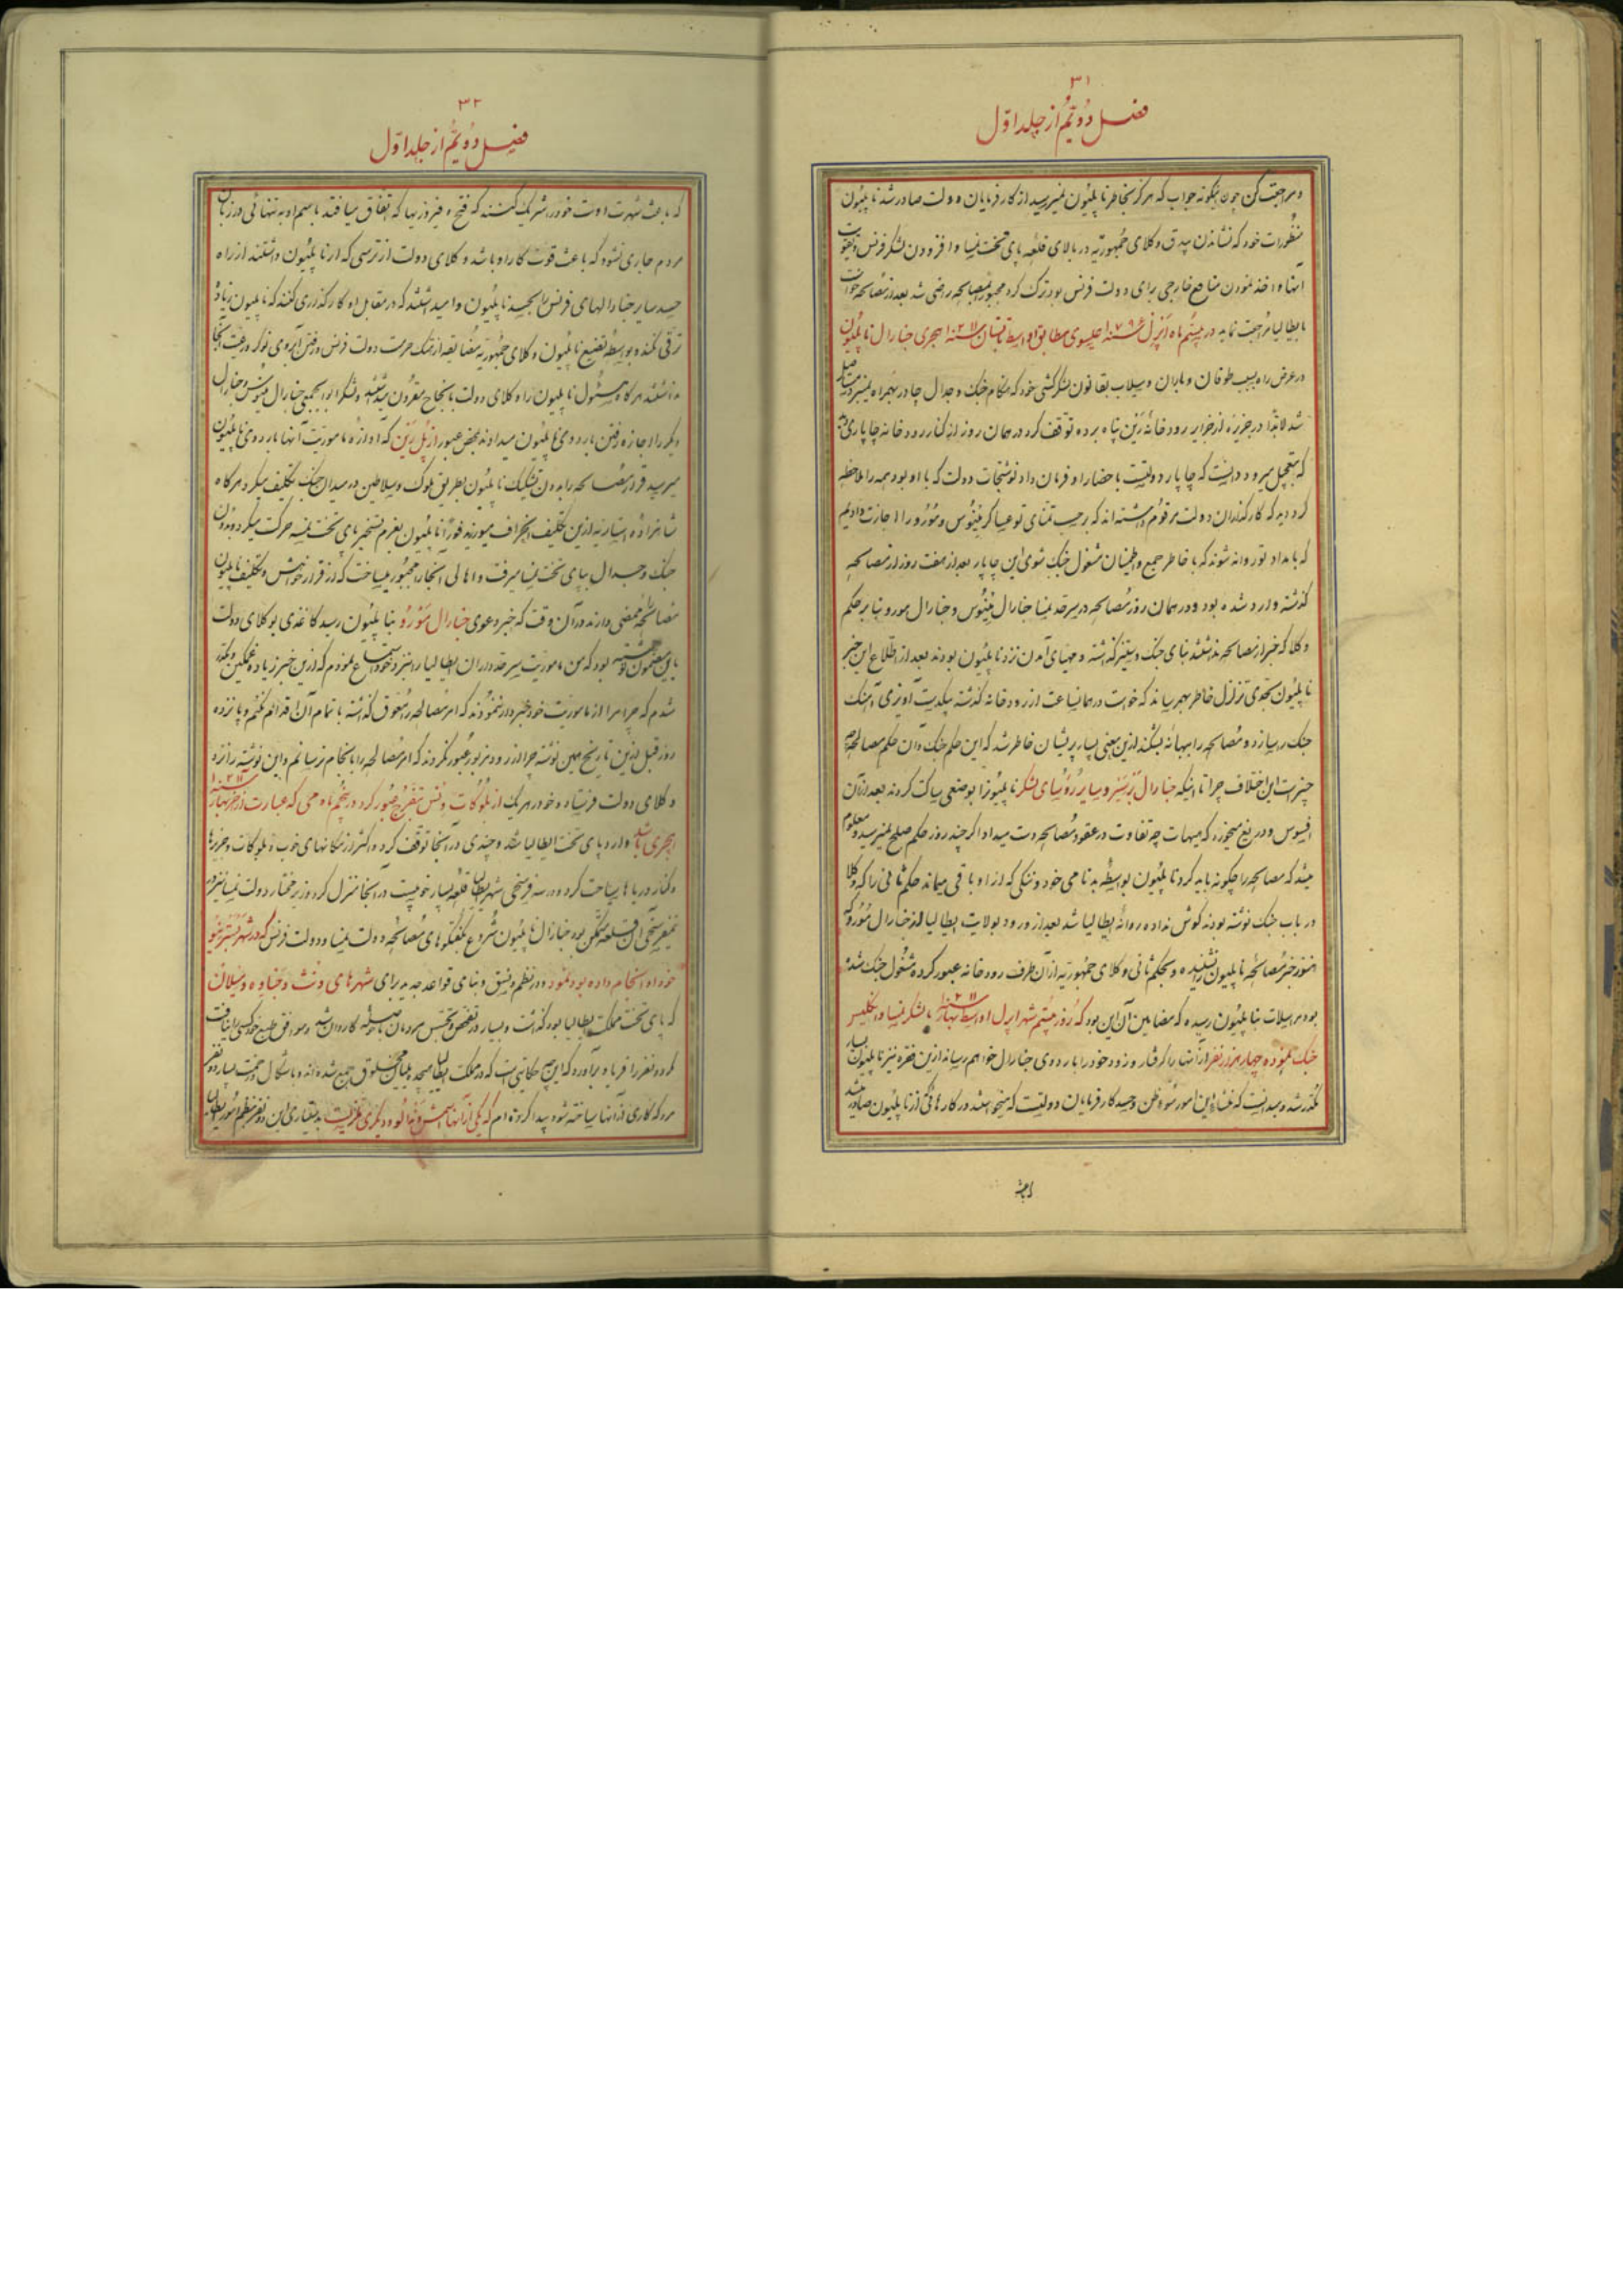 ۳۱
فصل دوّیّم از جلد اوّل
و مراجعت کن چون اینگونه جواب که هرگز بخاطر ناپلیون نمیرسید از کارفرمایان دولت صادر شد ناپلیون
منظورات خود که نشاندن بیدق وکلای جمهوریّه در بالای قلعه پای تخت نمسا و افزودن لشکر فرنس
آنها و اخذ نمودن منافع خارجی برای دولت فرنس بود ترک کرده مجبور بمصالحه راضی شد بعد از مصالحه خواست
بایطالیا مراجعت نماید در بیستم ماه اپرل سنه ۱۷۹۶ عیسوی مطابق سنه ۱۲۱۱ هجری جنارال ناپلیون
در عرض راه بسبب طوفان و باران و سیلاب بقانون لشکرکشی خود که هنگام جنک و جدال چادر بهمراه نمیبرد
شد لابدّاً در جزیره از جزایر رودخانه زین پناه برده توقف کرد در همان روز از کنار رودخانه چاپاری
که بتعجیل میرود دانست که چاپار دولتیست باحضار او فرمان داد نوشتجات دولت که با او بود همه را ملاحظه
کرد دید که کارگذاران دولت مرقوم داشته‌اند که بر حسب تمنای تو عساکر و مورو را اجازت دادیم
که بامداد تو روانه شوند که با خاطر جمع و اطمینان مشغول جنک شوی این چاپار بعد از هفت روز از مصالحه
گذشته وارد شده بود و در همان روز مصالحه در سرحد نمسا جنارال و جنارال مورو بنا بر حکم
وکلا که خبر از مصالحه نداشتند بنای جنک و ستیز گذاشته و مهیای آمدن نزد ناپلیون بودند بعد از اطلاع این خبر
ناپلیون بحدّی تزلزل خاطر بهمرساند که خواست در همانساعت از رودخانه گذشته بیکدست آویزی آهنک
جنک را سازد و مصالحه را ببهانه بشکند ازین معنی بسیار پریشان خاطر شد که این حکم جنک و آن حکم مصالحه
چیست این اختلاف چرا تا اینکه جنارال و سایر رؤسای لشکر ناپلیونرا بوضعی ساکت کردند بعد از آن
افسوس و دریغ میخورد که هیهات چه تفاوت در عقود مصالحه دست میداد اگر چند روز حکم صلح نمیرسید و معلوم
میشد که مصالحه را چگونه باید کرد ناپلیون بواسطه بدنامی خود و ننگی که از او باقی میماند حکم ثانی را که وکلا
در باب جنک نوشته بودند گوش نداده روانه ایطالیا شد بعد از ورود بولایت ایطالیا از جنارال مورو که
هنوز خبر مصالحه ناپلیون نشنیده و بحکم ثانی وکلای جمهوریّه از آن طرف رودخانه عبور کرده مشغول جنک شده
بود مراسلات بناپلیون رسیده که مضامین آن این بود که روز بیستم شهر اپرل اواسط بهار سنه ۱۲۱۱ با لشکر نمسا و انگلیس
جنک نموده چهار هزار نفر از آنها را گرفتار و زود خود را باردوی جنارال خواهم رسانید ازین فقره نیز ناپلیون بسیار
مکدّر شد و میدانست که منشأ این امور سوء ظن و حسد کارفرمایان دولتست که میخواستند در کارهائی که از ناپلیون صادر میشد
باعث
۳۲
فصل دوّیّم از جلد اوّل
که باعث شهرت اوست خود را شریک کنند که فتح و فیروزیها که اتفاق میافتد باسم او به تنهائی در زبان
مردم جاری نشود که باعث قوت کار او باشد وکلای دولت از ترسی که از ناپلیون داشتند از راه
حسد سایر جنارالهای فرنس را بحسد ناپلیون وامیداشتند که در مقابل او کارگذاری کنند که ناپلیون زیاد
ترقی نکند و بواسطه تضییع ناپلیون وکلای جمهوریّه مضایقه از هتک حرمت دولت فرنس و رفتن آبروی نوکر و رعیت آنجا
نداشتند هرگاه مسئول ناپلیون را وکلای دولت بانجاح مقرون میداشتند و لشکر ابوابجمعی جنارال و جنارال
دیگر را اجازه رفتن باردوی ناپلیون میدادند بمحض عبور از پل رین که آوازه مأموریت آنها باردوی ناپلیون
میرسید قرار مصالحه را بدون تشکیک ناپلیون بطریق ملوک و سلاطین در میدان جنک تکلیف میکرد هرگاه
شاهزاده استاریه ازین تکلیف انحراف میورزید فوراً ناپلیون بعزم تسخیر پای تخت نمسه حرکت میکرد و بدون
جنک و جدال بپای تخت نمسا میرفت و اهالی آنجا را مجبور میساخت که از قرار خواهش و تکلیف ناپلیون
مصالحه را ممضی دارند در آن وقت که خبر دعوی جنارال مورو بناپلیون رسید کاغذی بوکلای دولت
باین مضمون نوشته بود که من مأموریت سرحدداران ایطالیا را نزد خود استماع نمودم که ازین خبر زیاده غمگین و مکدّر
شدم که چرا مرا از مأموریت خود خبردار ننمودند که امر مصالحه را معوق گذاشته باتمام آن اقدام نکنم و پانزده
روز قبل ازین تاریخ همین نوشته چرا از رود مزبور عبور نکردند که امر مصالحه را بانجام نرسانم و این نوشته را نزد
وکلای دولت فرستاده خود در هر یک از بلوکات ونس بتفرج عبور کرد در پنجم ماه می که عبارت از آخر بهار سنه ۱۲۱۱
هجری باشد وارد پای تخت ایطالیا شد و چندی در آنجا توقف کرد و اکثر از مکانهای خوب و بلوکات و جزیره‌ها
و کنار دریاها سیاحت کرده در سه فرسخی شهر ایطالیا قلعه بسیار خوبیست در آنجا منزل کرد وزیر مختار دولت نمسا نیز در
نیم فرسخی آن قلعه متمکن بود جنارال ناپلیون شروع بگفتگوهای مصالحه دولت نمسا و دولت فرنس که در شهر
خود او انجام داده بود نمود و در نظم و نسق و بنای قواعد جدید برای شهرهای ونش و جناوه و میلان
که پای تخت مملکت ایطالیا بود گذاشت و بسیار در تفحص و تجسس مردمان با کاردان شد و موافق طبع خود کسی را نیافت
مگر دو نفر را فریاد برآورد که این چه حکایتی است که در مملکت ایطالیا مخلوق جمع شده‌اند و باشکال و زحمت بسیار دو نفر
مرد که کاری از آنها ساخته شود پیدا کرده‌ام که یکی از آنها و دیگری بدستیاری این دو نفر نظم امور ایطالیا